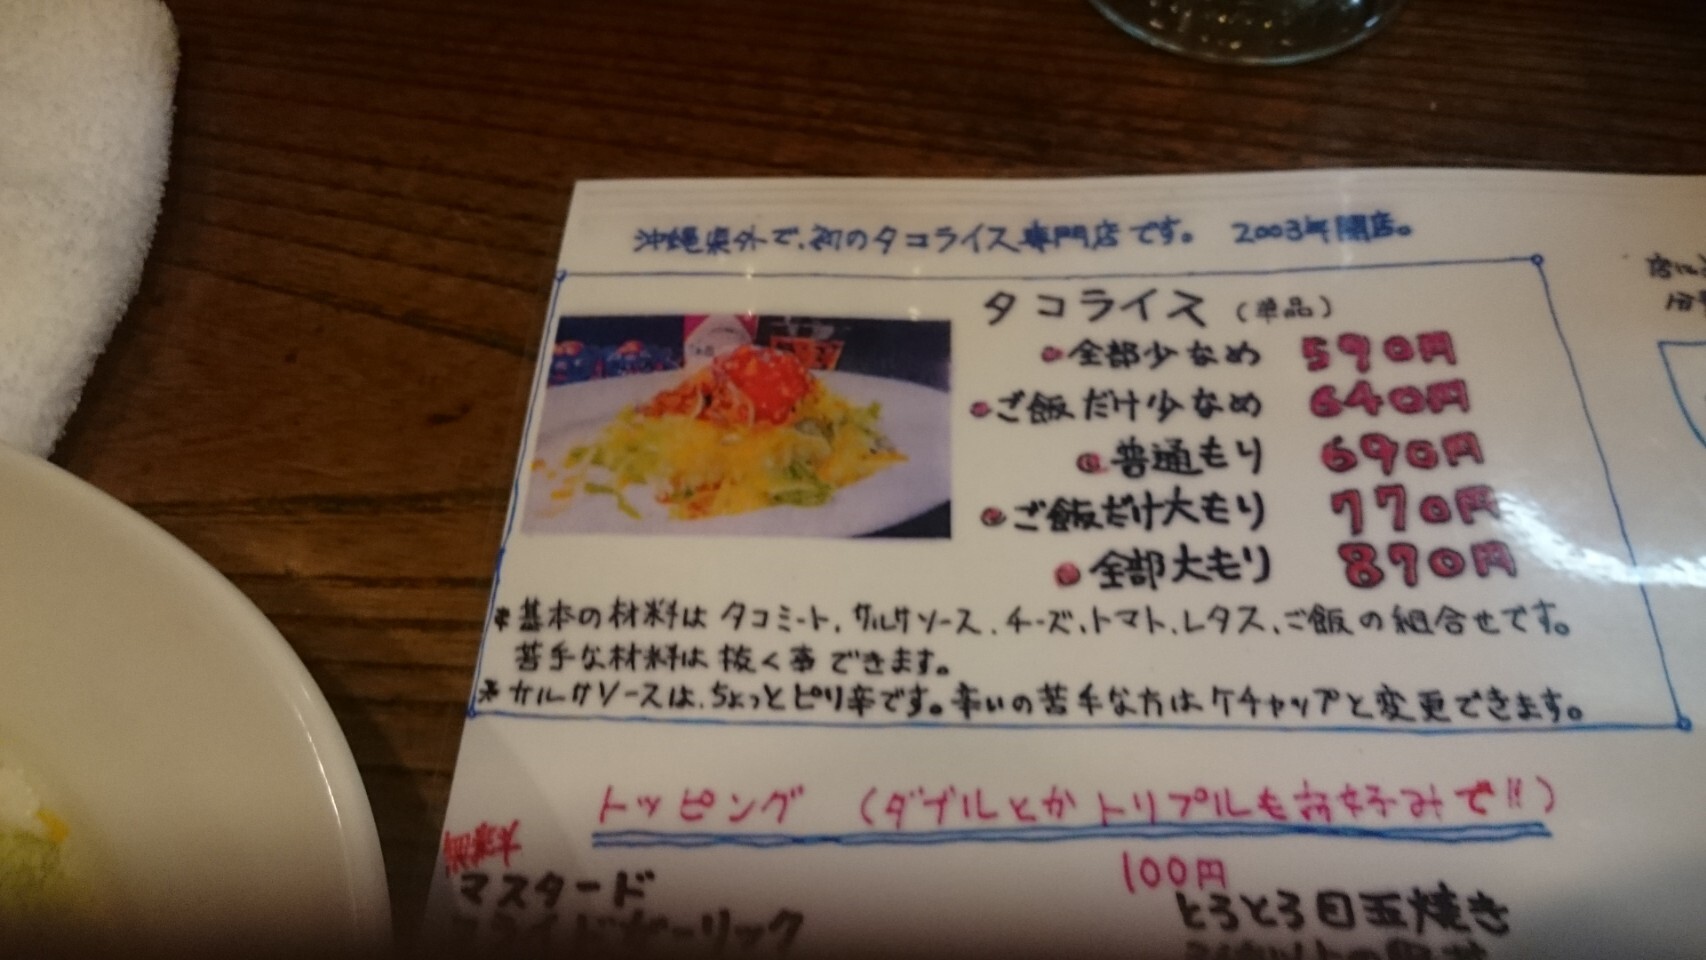 沖縄県外で、初のタコライス専門店です。 2003年開店。
タコライス (単品)
全部少なめ 590円
ご飯だけ少なめ 640円
普通もり 690円
ご飯だけ大もり 770円
全部大もり 870円
*基本の材料はタコミート、サルサソース、チーズ、トマト、レタス、ご飯の組合せです。
苦手な材料は抜く事できます。
*サルサソースは、ちょっとピリ辛です。辛いの苦手な方はケチャップと変更できます。
トッピング (ダブルとかトリプルもお好みで!!)
無料
マスタード
フライドガーリック
100円
とろとろ目玉焼き